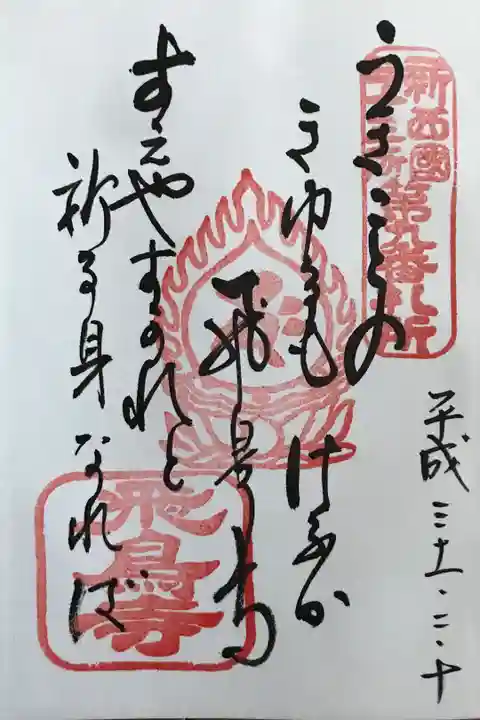 新西國三十三所第九番札所
うきことの
きゆるもけふか
飛鳥寺
すえやすかれと
祈る身なれば
飛鳥寺
平成三十一・二・十